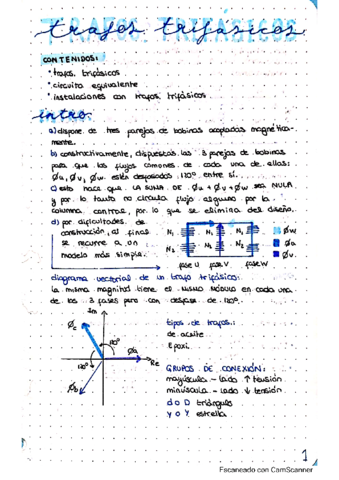 trafos trifásicos
CONTENIDOS:
* trafos. trifásicos
* circuito equivalente
* instalaciones con trafos. trifásicos
intro:
a) dispone de tres parejas de bobinas acopladas magnética-
mente.
b) constructivamente, dispuestas las 3 parejas de bobinas
para que los flujos comunes de cada una de ellas:
Øu, Øv, Øw. estén desfasados 120º entre sí.
c) esto hace que LA SUMA DE Øu + Øv + Øw SEA NULA
y por lo tanto no circula flujo alguno por la
columna central, por lo que se elimina del diseño.
d) por dificultades de
construcción, al final
se recurre a un
modelo más simple.
N₁ N₁ N₁
N₂ N₂ N₂
Øw
Øu
Øv.
fase U fase V fase W
diagrama vectorial de un trafo trifásico:
la misma magnitud tiene el mismo módulo en cada una
de las 3 fases pero con desfase de 120º.
Im
Øc
120º
Øa
Re
120º
Øb
tipos de trafos:
de aceite
Epoxi.
GRUPOS DE CONEXIÓN:
mayúscula - lado ↑ tensión
minúscula - lado ↓ tensión
d o D triángulo
y o Y estrella
1
Escaneado con CamScanner